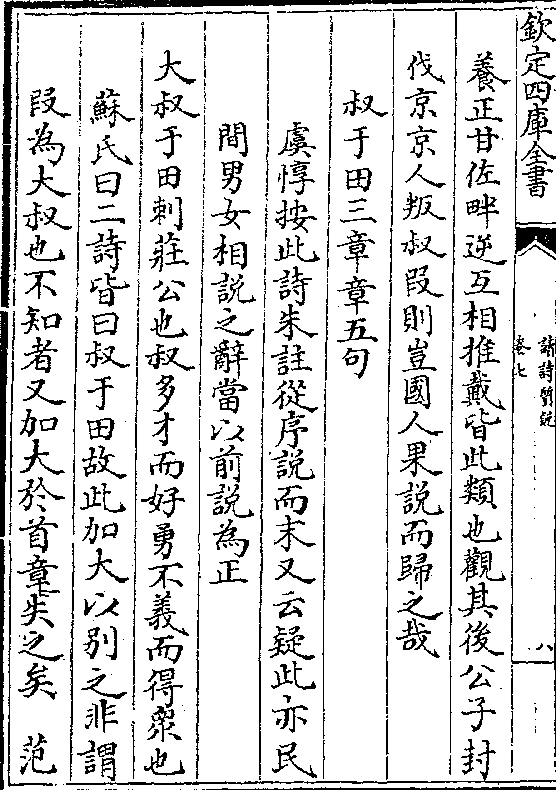 欽定四庫全書
讀詩質疑
卷七
八
養正甘佐畔逆互相推戴皆此類也觀其後公子封
伐京京人叛叔段則豈國人果說而歸之哉
叔于田三章章五句
虞惇按此詩朱註從序說而末又云疑此亦民
間男女相說之辭當以前說為正
大叔于田刺莊公也叔多才而好勇不義而得衆也
蘇氏曰二詩皆曰叔于田故此加大以别之非謂
段為大叔也不知者又加大於首章失之矣　范